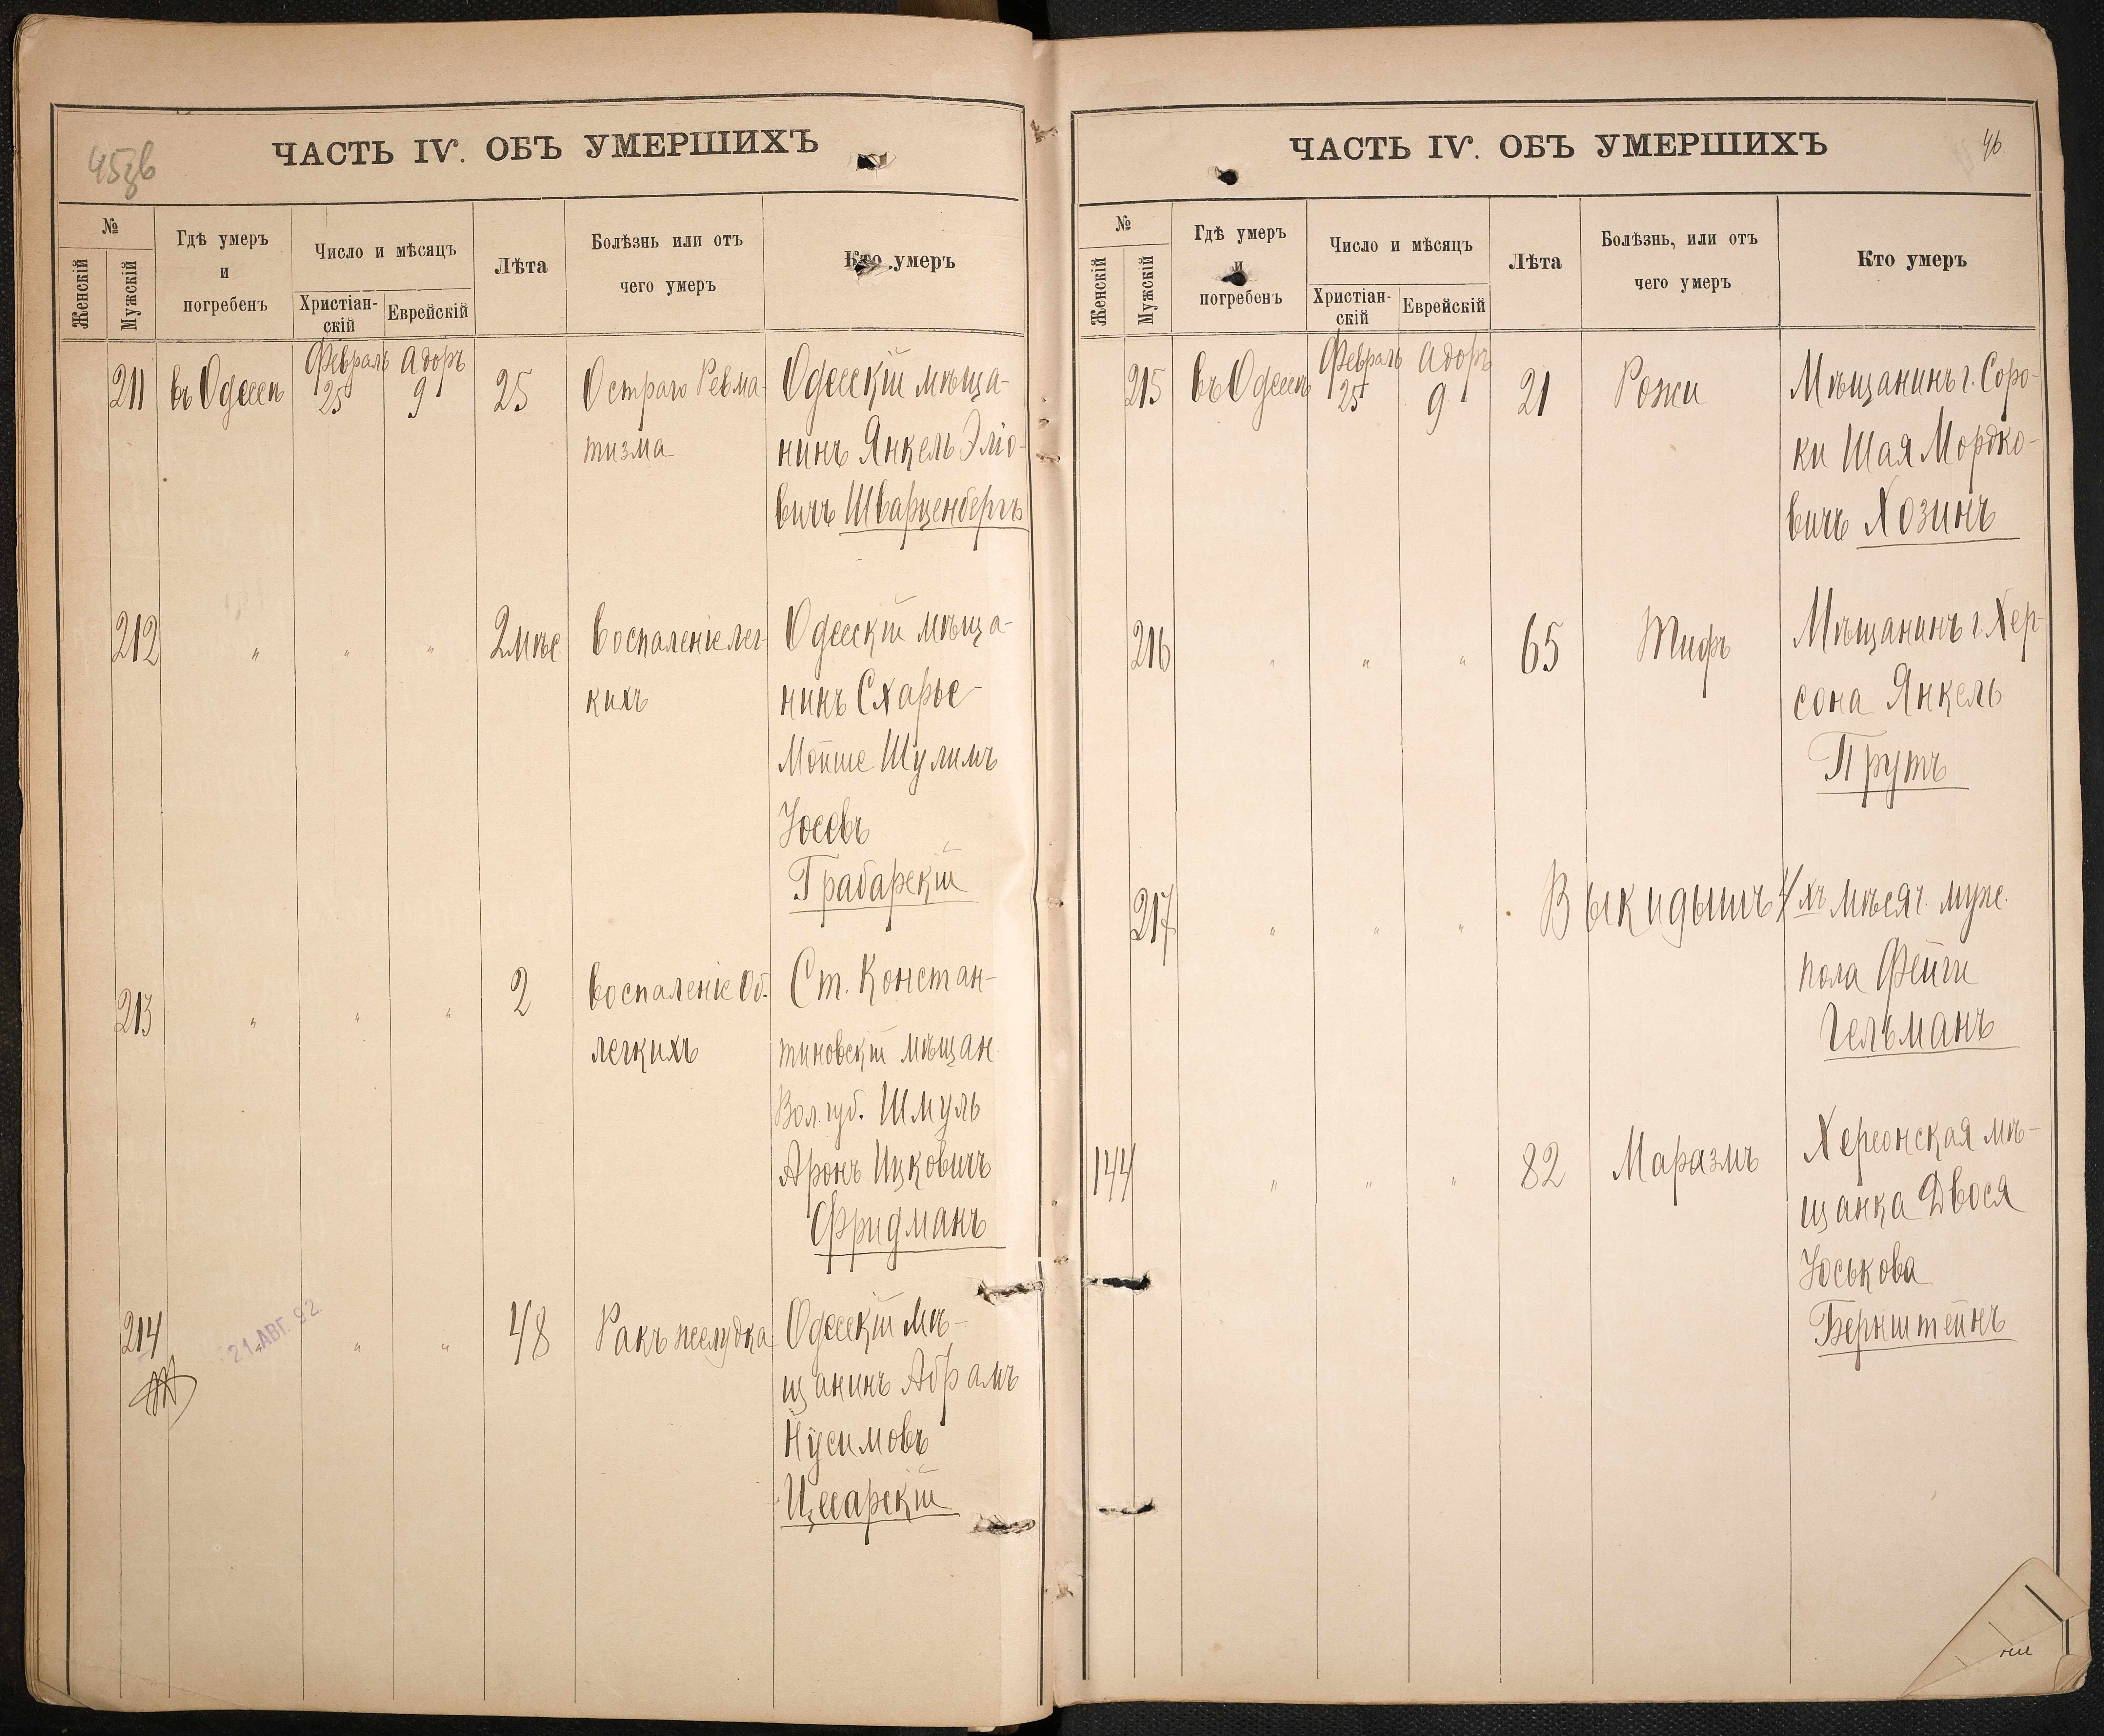 45зв
ЧАСТЬ IV. ОБЪ УМЕРШИХЪ
№
Женскій
Мужскій
Гдѣ умеръ
и
погребенъ
Число и мѣсяцъ
Христіан-
скій
Еврейскій
Лѣта
Болѣзнь или отъ
чего умеръ
Кто умеръ
211
въ Одессѣ
Февраль
25
Адоръ
9
25
Остраго Ревма-
тизма
Одесскій мѣща-
нинъ Янкель Эліо-
вичъ Шварценбергъ
212
"
"
"
2 мѣс
воспаленіе лег-
кихъ
Одесскій мѣща-
нинъ Схарье-
Мойше Шулимъ
Іосевъ
Грабарскій
213
"
"
"
2
воспаленіе об.
легкихъ
Ст. Констан-
тиновскій мѣщан
Вол. губ. Шмуль
Аронъ Ицковичъ
Фридманъ
214
21 АВГ. 92
"
"
48
Ракъ желудка
Одесскій мѣ-
щанинъ Абрамъ
Нусимовъ
Цесарскій
46
ЧАСТЬ IV. ОБЪ УМЕРШИХЪ
№
Женскій
Мужскій
Гдѣ умеръ
и
погребенъ
Число и мѣсяцъ
Христіан-
скій
Еврейскій
Лѣта
Болѣзнь, или отъ
чего умеръ
Кто умеръ
215
въ Одессѣ
Февраль
25
Адоръ
9
21
Рожи
Мѣщанинъ г. Соро-
ки Шая Мордко-
вичъ Хозинъ
216
"
"
"
65
Тифъ
Мѣщанинъ г. Хер-
сона Янкель
Прутъ
217
"
"
"
Выкидышъ 4хъ мѣсяч. муж.
пола Фейги
Гельманъ
144
"
"
"
82
Маразмъ
Херсонская мѣ-
щанка Двося
Іоськова
Бернштейнъ